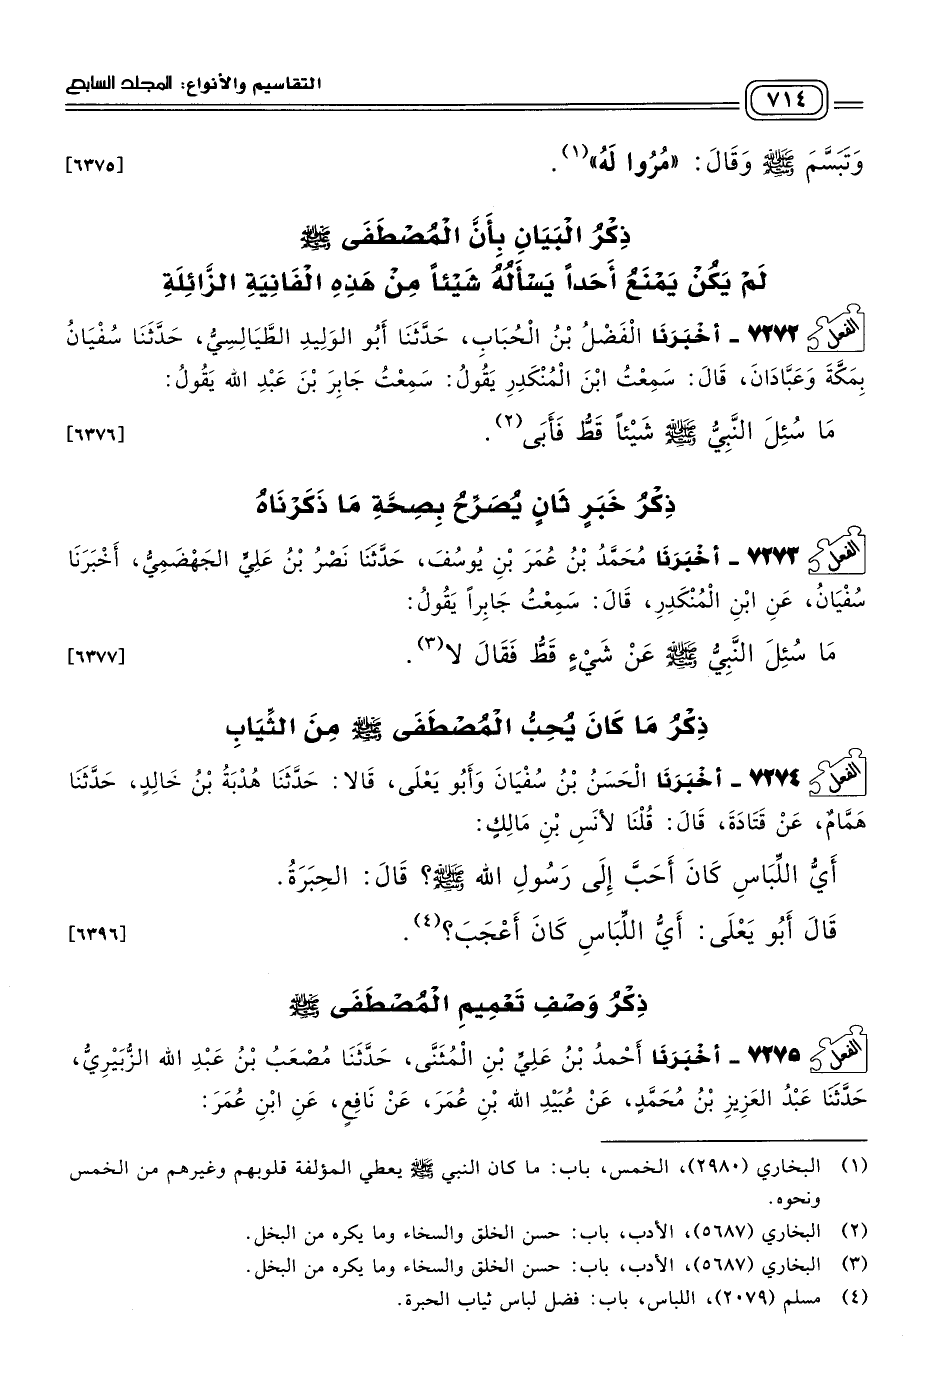 التقاسيم والأنواع: المجلد السابع
٧١٤
وَتَبَسَّمَ ﷺ وَقَالَ: «مُرُوا لَهُ»(١). [٦٣٧٥]
ذِكْرُ الْبَيَانِ بِأَنَّ الْمُصْطَفَى ﷺ
لَمْ يَكُنْ يَمْنَعُ أَحَداً يَسْأَلُهُ شَيْئاً مِنْ هَذِهِ الْفَانِيَةِ الزَّائِلَةِ
الفعل ٧٢٧٢ - أَخْبَرَنَا الْفَضْلُ بْنُ الْحُبَابِ، حَدَّثَنَا أَبُو الوَلِيدِ الطَّيَالِسِيُّ، حَدَّثَنَا سُفْيَانُ
بِمَكَّةَ وَعَبَّادَانَ، قَالَ: سَمِعْتُ ابْنَ الْمُنْكَدِرِ يَقُولُ: سَمِعْتُ جَابِرَ بْنَ عَبْدِ الله يَقُولُ:
مَا سُئِلَ النَّبِيُّ ﷺ شَيْئاً قَطُّ فَأَبَى(٢). [٦٣٧٦]
ذِكْرُ خَبَرٍ ثَانٍ يُصَرِّحُ بِصِحَّةِ مَا ذَكَرْنَاهُ
الفعل ٧٢٧٣ - أَخْبَرَنَا مُحَمَّدُ بْنُ عُمَرَ بْنِ يُوسُفَ، حَدَّثَنَا نَصْرُ بْنُ عَلِيٍّ الجَهْضَمِيُّ، أَخْبَرَنَا
سُفْيَانُ، عَنِ ابْنِ الْمُنْكَدِرِ، قَالَ: سَمِعْتُ جَابِراً يَقُولُ:
مَا سُئِلَ النَّبِيُّ ﷺ عَنْ شَيْءٍ قَطُّ فَقَالَ لا(٣). [٦٣٧٧]
ذِكْرُ مَا كَانَ يُحِبُّ الْمُصْطَفَى ﷺ مِنَ الثِّيَابِ
الفعل ٧٢٧٤ - أَخْبَرَنَا الْحَسَنُ بْنُ سُفْيَانَ وَأَبُو يَعْلَى، قَالا: حَدَّثَنَا هُدْبَةُ بْنُ خَالِدٍ، حَدَّثَنَا
هَمَّامٌ، عَنْ قَتَادَةَ، قَالَ: قُلْنَا لأَنَسِ بْنِ مَالِكٍ:
أَيُّ اللِّبَاسِ كَانَ أَحَبَّ إِلَى رَسُولِ الله ﷺ؟ قَالَ: الحِبَرَةُ.
قَالَ أَبُو يَعْلَى: أَيُّ اللِّبَاسِ كَانَ أَعْجَبَ؟(٤). [٦٣٩٦]
ذِكْرُ وَصْفِ تَعْمِيمِ الْمُصْطَفَى ﷺ
الفعل ٧٢٧٥ - أَخْبَرَنَا أَحْمدُ بْنُ عَلِيِّ بْنِ الْمُثَنَّى، حَدَّثَنَا مُصْعَبُ بْنُ عَبْدِ الله الزُّبَيْرِيُّ،
حَدَّثَنَا عَبْدُ العَزِيزِ بْنُ مُحَمَّدٍ، عَنْ عُبَيْدِ الله بْنِ عُمَرَ، عَنْ نَافِعٍ، عَنِ ابْنِ عُمَرَ:
(١) البخاري (٢٩٨٠)، الخمس، باب: ما كان النبي ﷺ يعطي المؤلفة قلوبهم وغيرهم من الخمس
ونحوه.
(٢) البخاري (٥٦٨٧)، الأدب، باب: حسن الخلق والسخاء وما يكره من البخل.
(٣) البخاري (٥٦٨٧)، الأدب، باب: حسن الخلق والسخاء وما يكره من البخل.
(٤) مسلم (٢٠٧٩)، اللباس، باب: فضل لباس ثياب الحبرة.